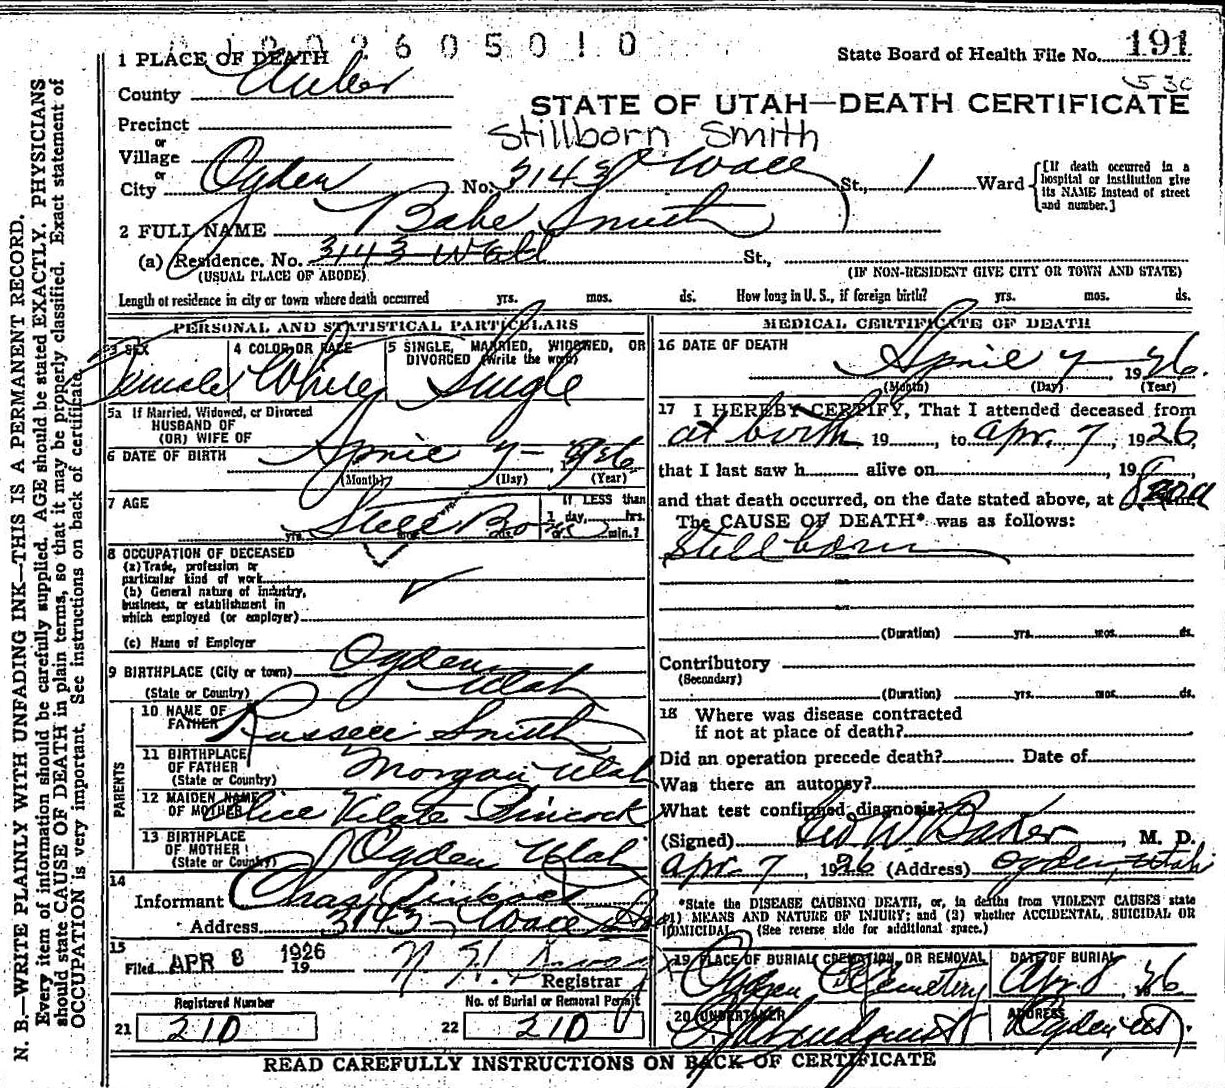 N. B.—WRITE PLAINLY WITH UNFADING INK—THIS IS A PERMANENT RECORD.
Every item of information should be carefully supplied. AGE should be stated EXACTLY. PHYSICIANS
should state CAUSE OF DEATH in plain terms, so that it may be properly classified. Exact statement of
OCCUPATION is very important. See instructions on back of certificate.
2605010
1 PLACE OF DEATH
State Board of Health File No. 191
530
County Weber
STATE OF UTAH—DEATH CERTIFICATE
Precinct
Stillborn Smith
or
Village
or
City Ogden No. 3143 Wall St., 1 Ward
[If death occurred in a
hospital or institution give
its NAME instead of street
and number.]
2 FULL NAME Babe Smith
(a) Residence. No. 3143 Wall St.,
(USUAL PLACE OF ABODE)
(IF NON-RESIDENT GIVE CITY OR TOWN AND STATE)
Length of residence in city or town where death occurred yrs. mos. ds. How long in U. S., if foreign birth? yrs. mos. ds.
PERSONAL AND STATISTICAL PARTICULARS
3 SEX
4 COLOR OR RACE
5 SINGLE, MARRIED, WIDOWED, OR
DIVORCED (Write the word)
Female White Single
5a If Married, Widowed, or Divorced
HUSBAND OF
(OR) WIFE OF
6 DATE OF BIRTH April 7- 1926
(Month) (Day) (Year)
7 AGE Still Born
yrs. mos. ds.
If LESS than
1 day, hrs.
or min.?
8 OCCUPATION OF DECEASED
(a) Trade, profession or
particular kind of work
(b) General nature of industry,
business, or establishment in
which employed (or employer)
(c) Name of Employer
9 BIRTHPLACE (City or town) Ogden
(State or Country) Utah
PARENTS
10 NAME OF
FATHER Russell Smith
11 BIRTHPLACE
OF FATHER
(State or Country) Morgan Utah
12 MAIDEN NAME
OF MOTHER Alice Vilate Pincock
13 BIRTHPLACE
OF MOTHER
(State or Country) Ogden Utah
14
Informant Chas Pincock
Address 3143 - Wall
15
Filed APR 8 1926
19
Registrar
Registered Number
No. of Burial or Removal Permit
21 210 22 210
MEDICAL CERTIFICATE OF DEATH
16 DATE OF DEATH
April 7- 1926.
(Month) (Day) (Year)
17 I HEREBY CERTIFY, That I attended deceased from
at birth 19, to Apr. 7, 1926,
that I last saw h alive on, 19,
and that death occurred, on the date stated above, at 8
The CAUSE OF DEATH* was as follows:
Stillborn
(Duration) yrs. mos. ds.
Contributory
(Secondary)
(Duration) yrs. mos. ds.
18 Where was disease contracted
if not at place of death?
Did an operation precede death? Date of
Was there an autopsy?
What test confirmed diagnosis?
(Signed) W. Baker, M. D.
Apr. 7, 1926 (Address) Ogden, Utah
*State the DISEASE CAUSING DEATH, or, in deaths from VIOLENT CAUSES state
(1) MEANS AND NATURE OF INJURY; and (2) whether ACCIDENTAL, SUICIDAL OR
HOMICIDAL. (See reverse side for additional space.)
19 PLACE OF BURIAL, CREMATION, OR REMOVAL
DATE OF BURIAL
Ogden Cemetery Apr 8 1926
20 UNDERTAKER
ADDRESS
Ogden, Ut.
READ CAREFULLY INSTRUCTIONS ON BACK OF CERTIFICATE